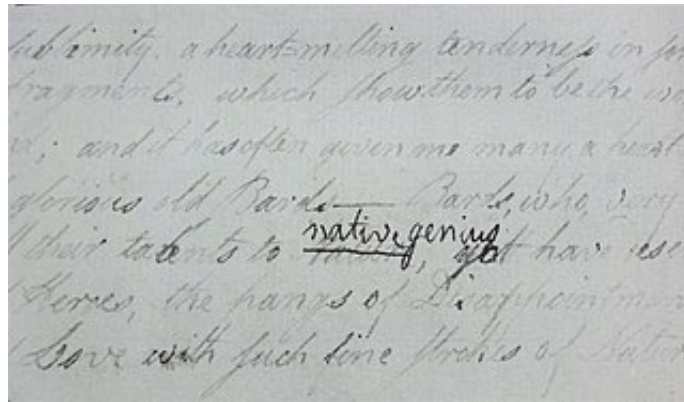 sublimity, a heart-melting tenderness in
fragments, which show them to be the
; and it has often given me many a heart
glorious old Bards — Bards, who, very
native genius
their talents to yet have
Heroes, the pangs of Disappointmen
Love with such fine strokes of Natur